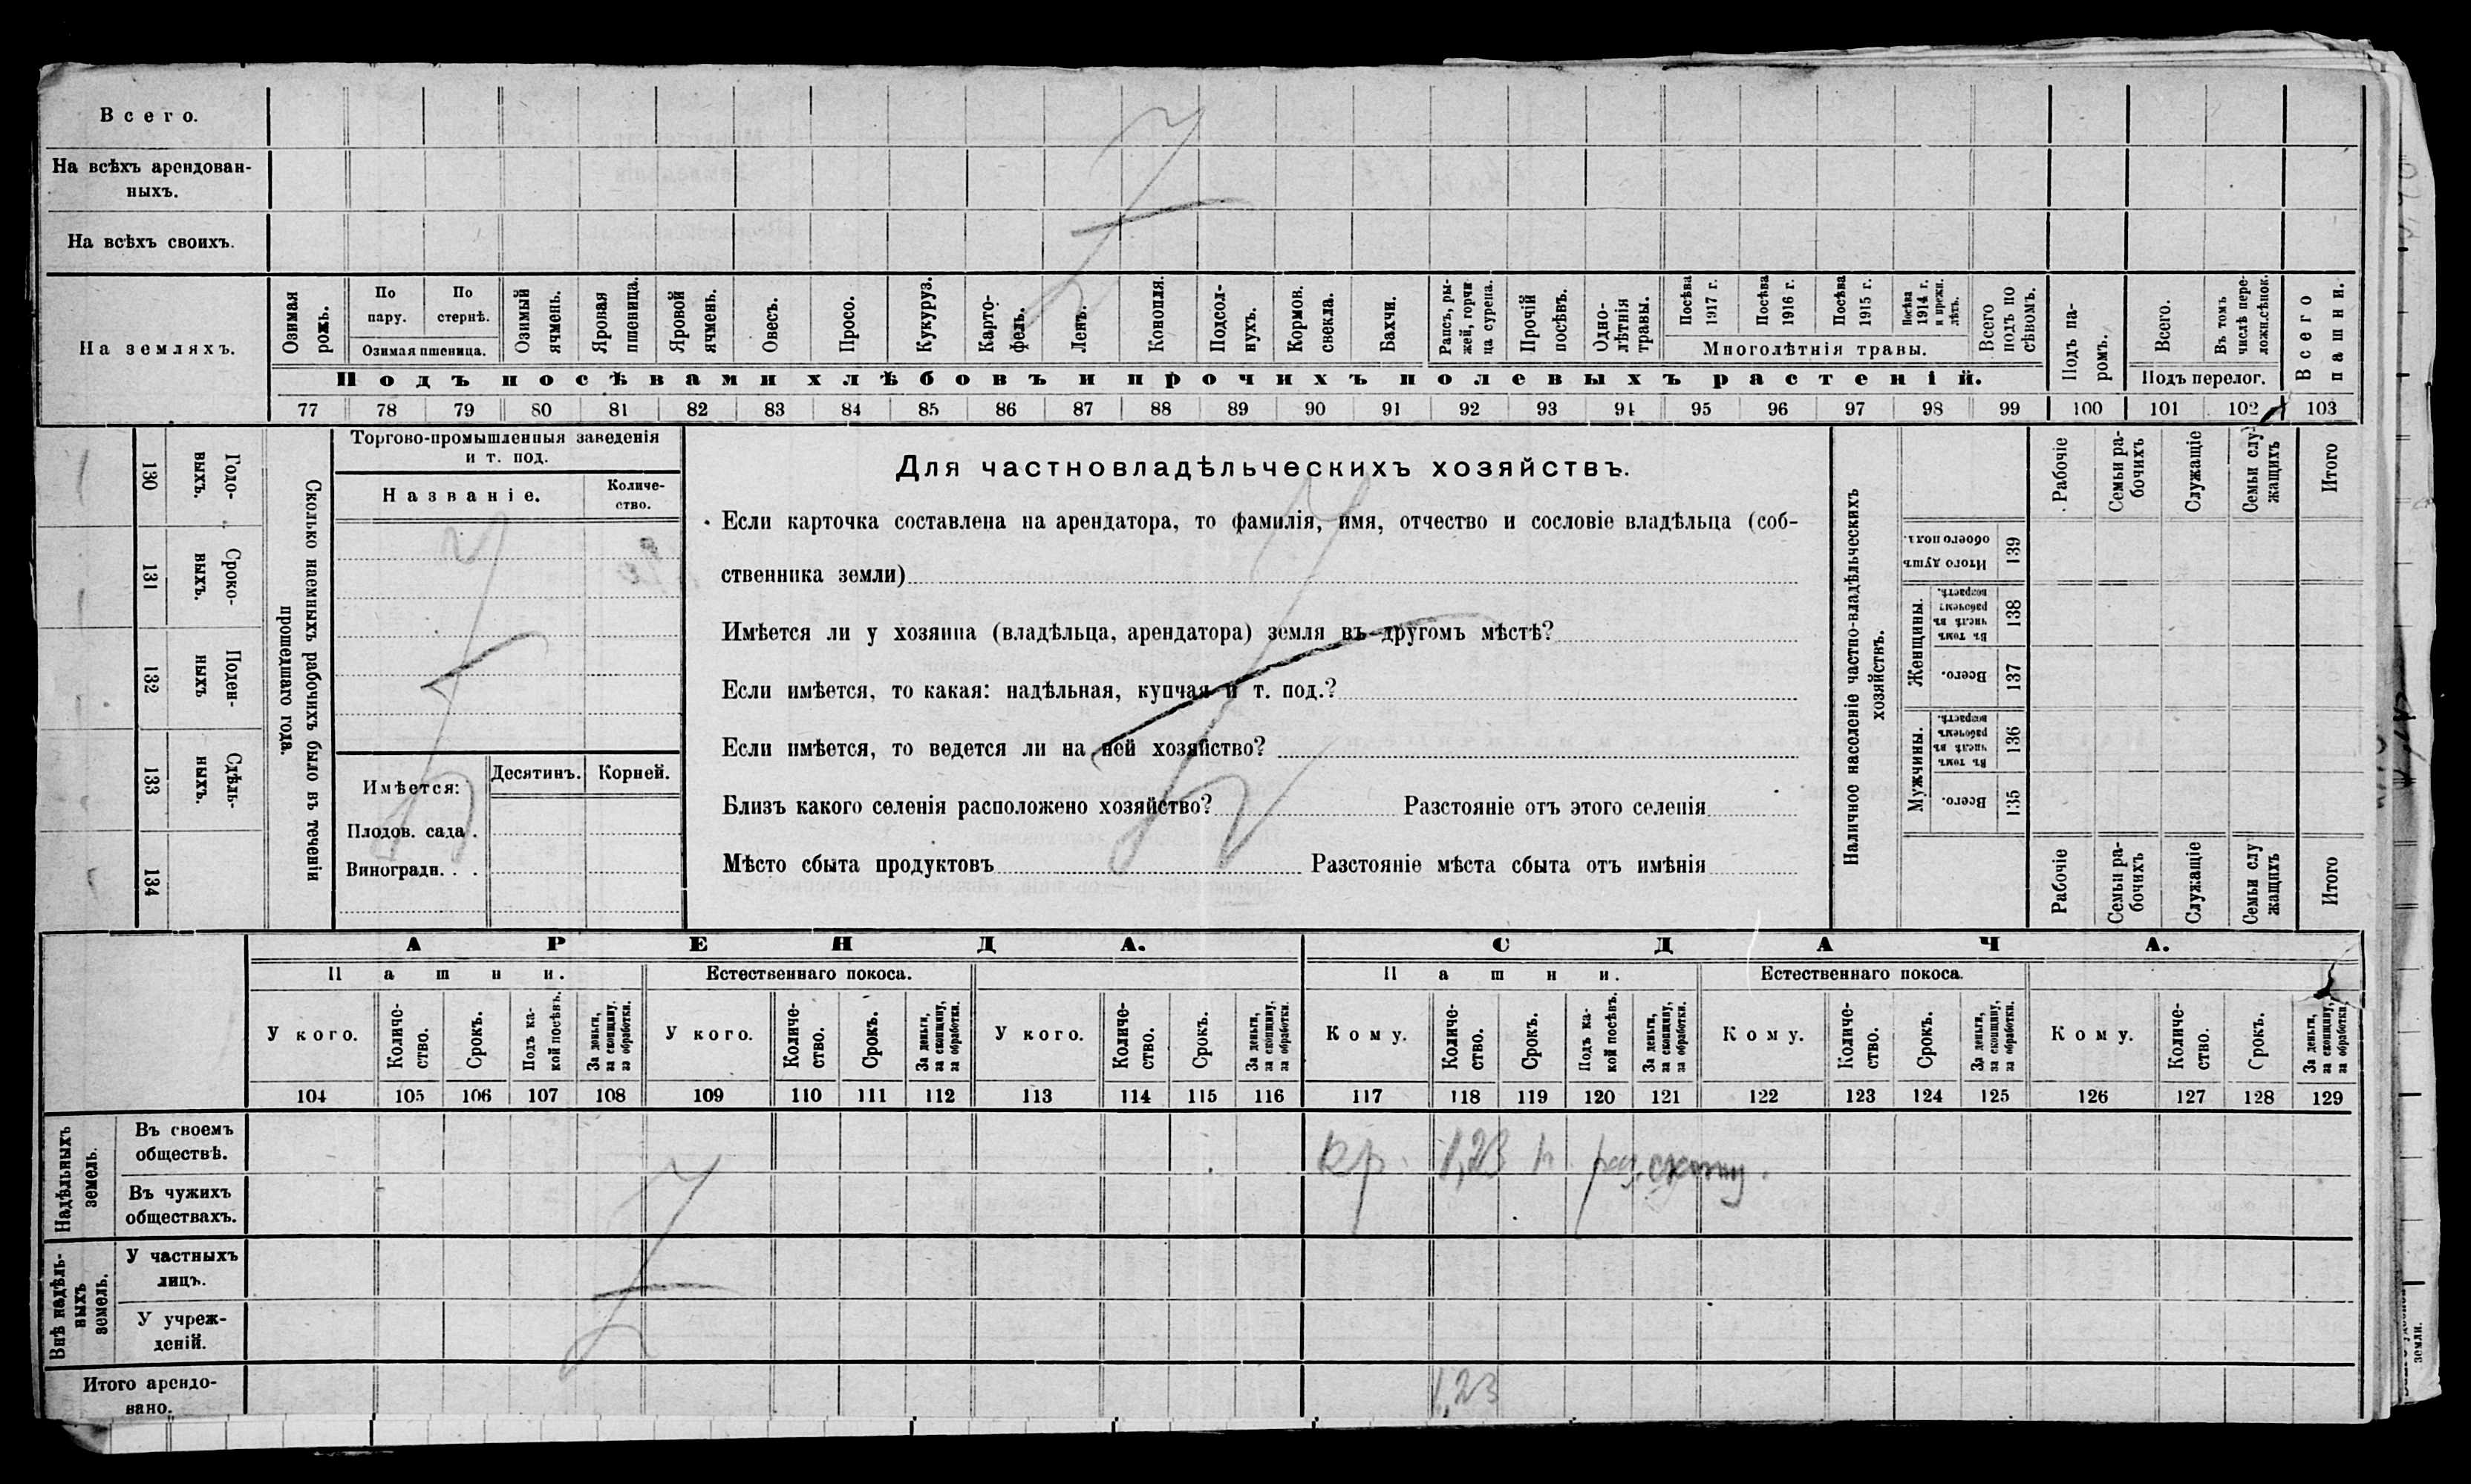 Всего.
На всѣхъ арендован-
ныхъ.
На всѣхъ своихъ.
На земляхъ.
Озимая рожь.
По пару.
По стернѣ.
Озимая пшеница.
Озимый ячмень.
Яровая пшеница.
Яровой ячмень.
Овесъ.
Просо.
Кукуруз.
Карто-
фель.
Ленъ.
Конопля.
Подсол-
нухъ.
Кормов.
свекла.
Бахчи.
Рапсъ, ры-
жей, горчи
ца сурепа.
Прочій
посѣвъ.
Одно-
лѣтнія
травы.
Посѣва
1917 г.
Посѣва
1916 г.
Посѣва
1915 г.
Посѣва
1914 г.
и прежн.
лѣтъ.
Многолѣтнія травы.
Всего
подъ по
сѣвомъ.
Подъ па-
ромъ.
Всего.
Въ томъ
числѣ пере-
ложн. сѣнок.
Подъ перелог.
Всего
пашни.
Подъ посѣвами хлѣбовъ и прочихъ полевыхъ растеній.
77 78 79 80 81 82 83 84 85 86 87 88 89 90 91 92 93 94 95 96 97 98 99 100 101 102 103
130
Годо-
выхъ.
131
Сроко-
ныхъ.
132
Поден-
ныхъ
133
Сдѣль-
ныхъ.
134
Сколько наемныхъ рабочихъ было въ теченіи
прошедшаго года.
Торгово-промышленныя заведенія
и т. под.
Названіе.
Количе-
ство.
Имѣется:
Десятинъ.
Корней.
Плодов. сада .
Виноградн. . .
Для частновладѣльческихъ хозяйствъ.
Если карточка составлена на арендатора, то фамилія, имя, отчество и сословіе владѣльца (соб-
ственника земли)
Имѣется ли у хозяина (владѣльца, арендатора) земля въ другомъ мѣстѣ?
Если имѣется, то какая: надѣльная, купчая и т. под.?
Если имѣется, то ведется ли на ней хозяйство?
Близъ какого селенія расположено хозяйство? Разстояніе отъ этого селенія
Мѣсто сбыта продуктовъ Разстояніе мѣста сбыта отъ имѣнія
Наличное населеніе частно-владѣльческихъ
хозяйствъ.
Рабочіе
Семьи ра-
бочихъ
Служащіе
Семьи слу-
жащихъ
Итого
Итого душъ
обоего пола.
139
Женщины.
Въ томъ
числѣ въ
рабочемъ
возрастѣ.
138
Всего.
137
Мужчины.
Въ томъ
числѣ въ
рабочемъ
возрастѣ.
136
Всего.
135
Рабочіе
Семьи ра-
бочихъ
Служащіе
Семьи слу
жащихъ
Итого
АРЕНДА.
СДАЧА.
Пашни.
Естественнаго покоса.
Пашни.
Естественнаго покоса.
У кого.
Количе-
ство.
Срокъ.
Подъ ка-
кой посѣвъ.
За деньги,
за скопщину,
за обработки.
У кого.
Количе-
ство.
Срокъ.
За деньги,
за скопщину,
за обработки.
У кого.
Количе-
ство.
Срокъ.
За деньги,
за скопщину,
за обработки.
Кому.
Количе-
ство.
Срокъ.
Подъ ка-
кой посѣвъ.
За деньги,
за скопщину,
за обработки.
Кому.
Количе-
ство.
Срокъ.
За деньги,
за скопщину,
за обработки.
Кому.
Количе-
ство.
Срокъ.
За деньги,
за скопщину,
за обработки.
104 105 106 107 108 109 110 111 112 113 114 115 116 117 118 119 120 121 122 123 124 125 126 127 128 129
Надѣльныхъ
земель.
Въ своемъ
обществѣ.
кр. 1,23
Въ чужихъ
обществахъ.
Внѣ надѣль-
ныхъ
земель.
У частныхъ
лицъ.
У учреж-
деній.
Итого арендо-
вано.
1,23
земли.